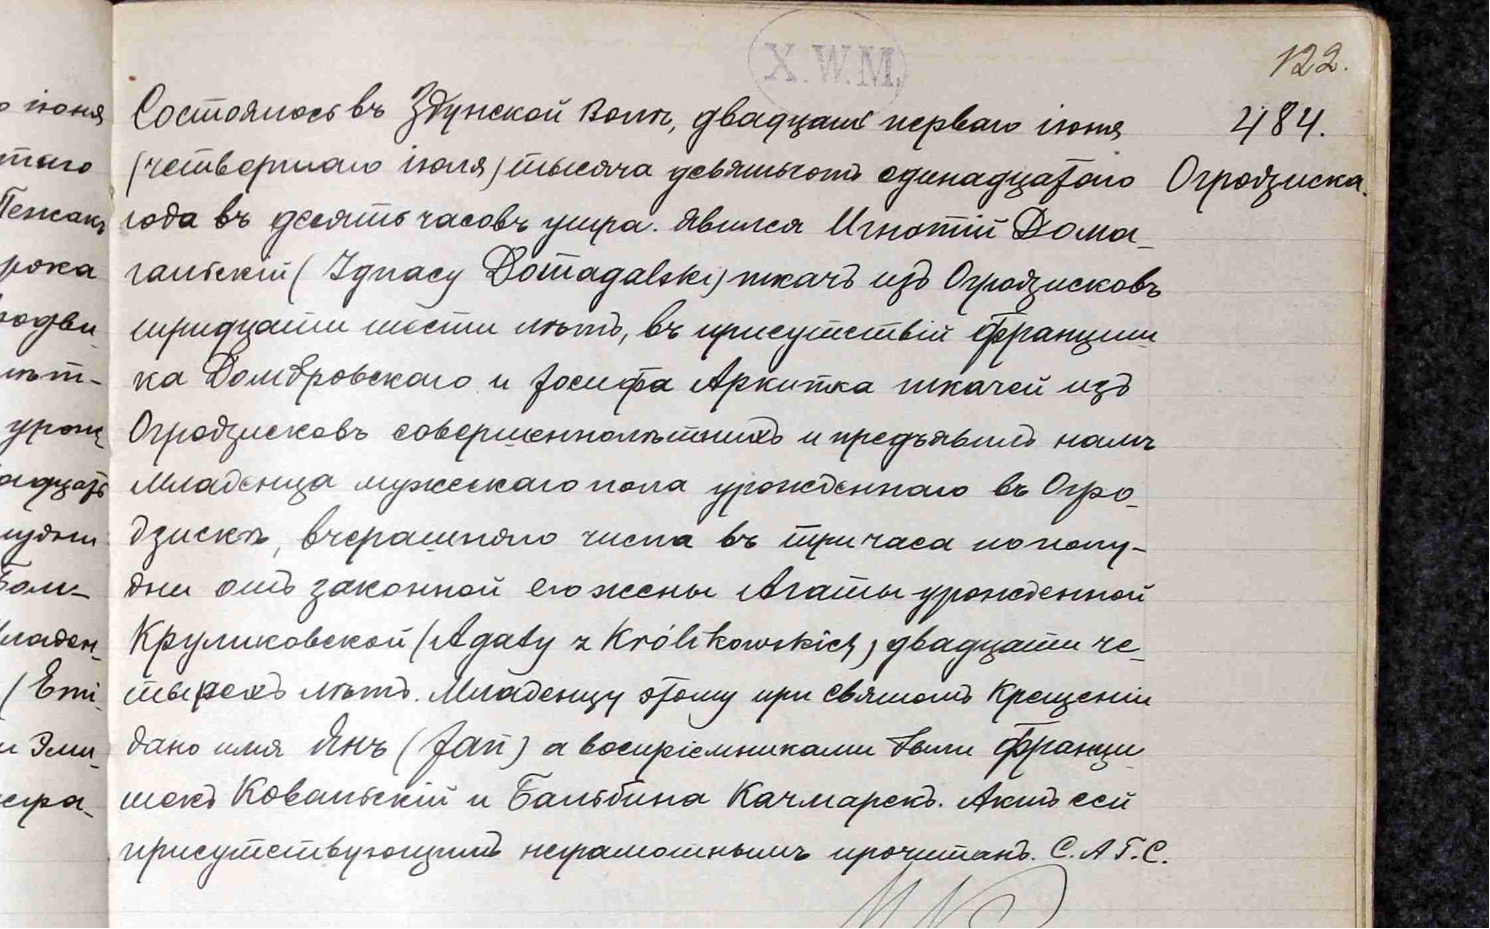 X.W.M.
122.
Состоялось въ Здунской Волѣ, двадцать перваго іюня
484.
(четвертаго іюля) тысяча девятьсотъ одинадцатого
Огродзиска.
года въ десять часовъ утра. Явился Игнатій Дома-
гальскій (Ignacy Domagalski) ткачъ изъ Огродзисковъ
тридцати шести лѣтъ, въ присутствіи Францишка
ка Домбровскаго и Іосифа Аркитка ткачей изъ
Огродзисковъ совершеннолѣтнихъ и предъявилъ намъ
Младенца мужескаго пола урожденнаго въ Огро-
дзискѣ, вчерашняго числа въ три часа по полу-
дни отъ законной его жены Агаты урожденной
Круликовской (Agaty z Królikowskich) двадцати че-
тырехъ лѣтъ. Младенцу этому при Святомъ Крещеніи
дано имя Янъ (Jan) а воспріемниками были Франци-
шекъ Ковальскій и Бальбина Качмарекъ. Актъ сей
присутствующимъ неграмотнымъ прочитанъ. С.А.Г.С.
о іюня
таго
рока
лѣт-
младен-
и Эми-